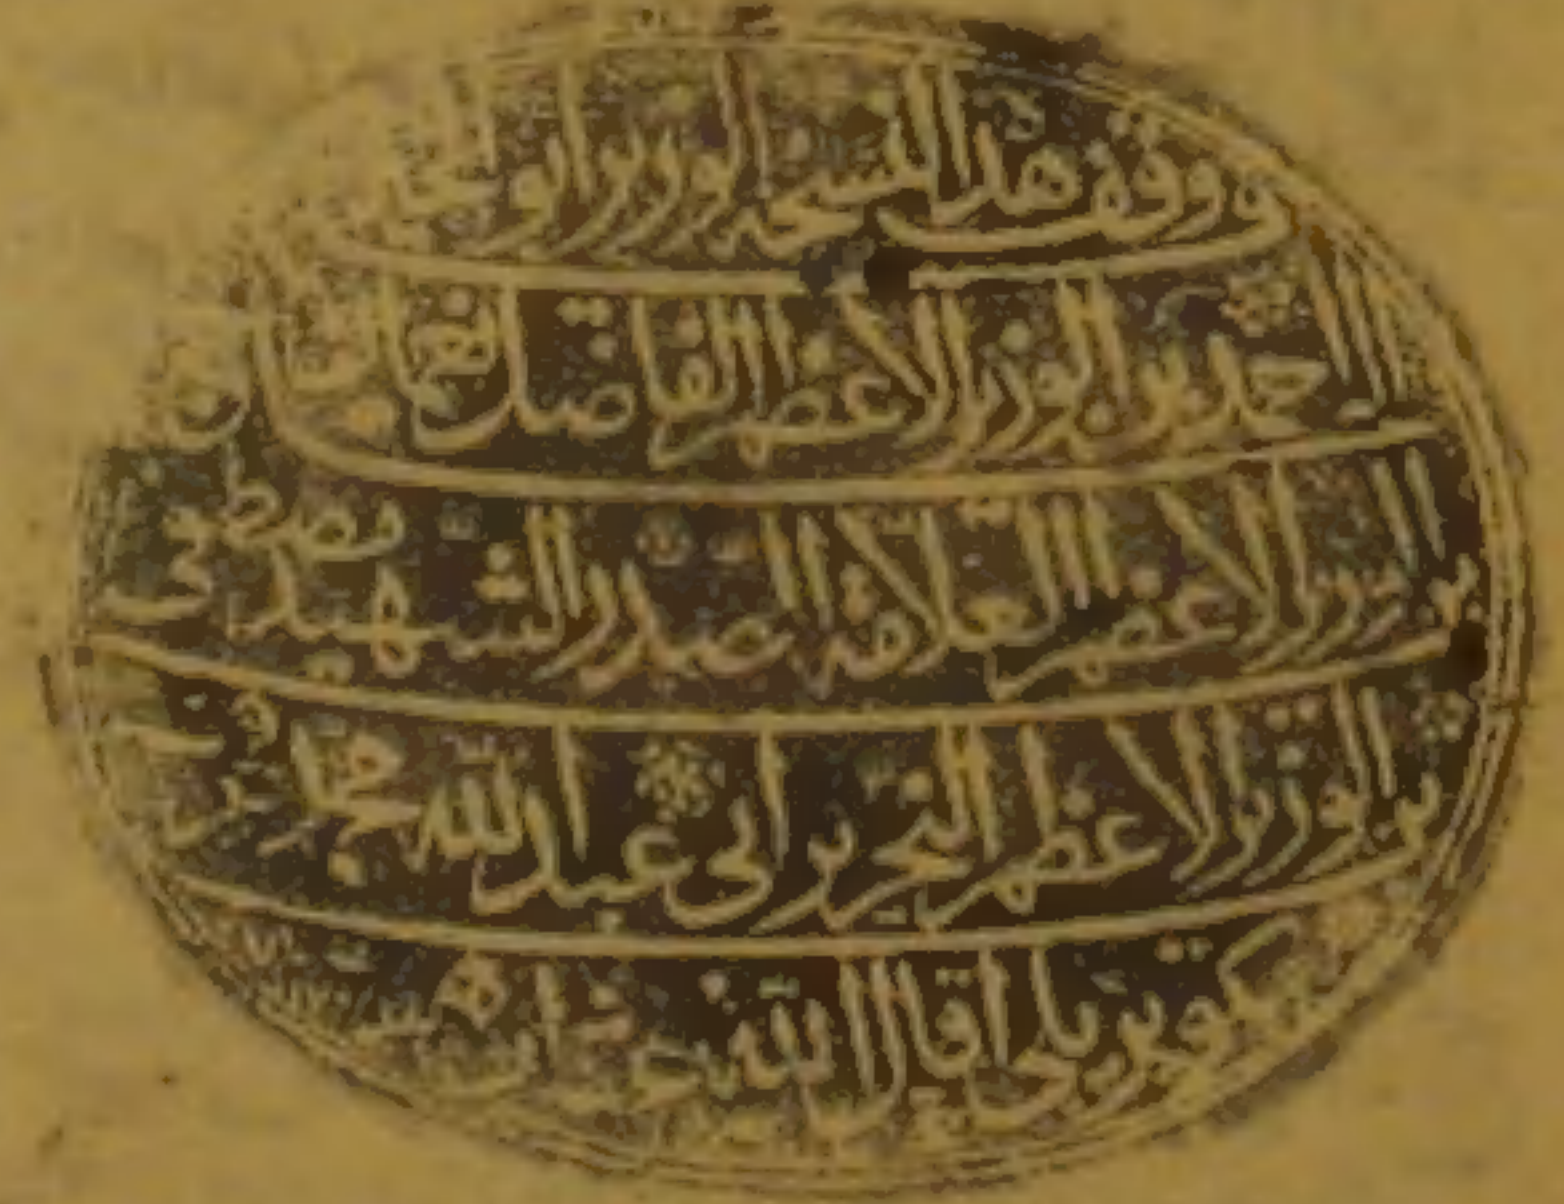 و وقف هذا النسخة الوزير ابو الخير
احمد بن الوزير الاعظم الفاضل نعمان
بن الوزير الاعظم العلامة الصدر الشهيد مصطفى
بن الوزير الاعظم النحرير ابى عبد الله محمد
كوپريلى اقال الله